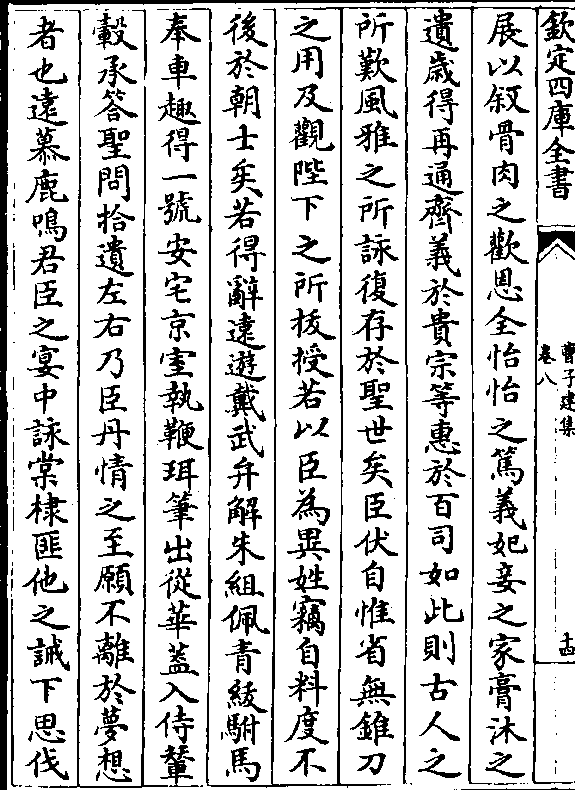 欽定四庫全書
曹子建集
卷八
十四
展以敘骨肉之歡恩全怡怡之篤義妃妾之家膏沐之
遺歲得再通齊義於貴宗等惠於百司如此則古人之
所歎風雅之所詠復存於聖世矣臣伏自惟省無錐刀
之用及觀陛下之所拔授若以臣為異姓竊自料度不
後於朝士矣若得辭遠遊戴武弁解朱組佩青紱駙馬
奉車趣得一號安宅京室執鞭珥筆出從華蓋入侍輦
轂承答聖問拾遺左右乃臣丹情之至願不離於夢想
者也遠慕鹿鳴君臣之宴中詠棠棣匪他之誡下思伐